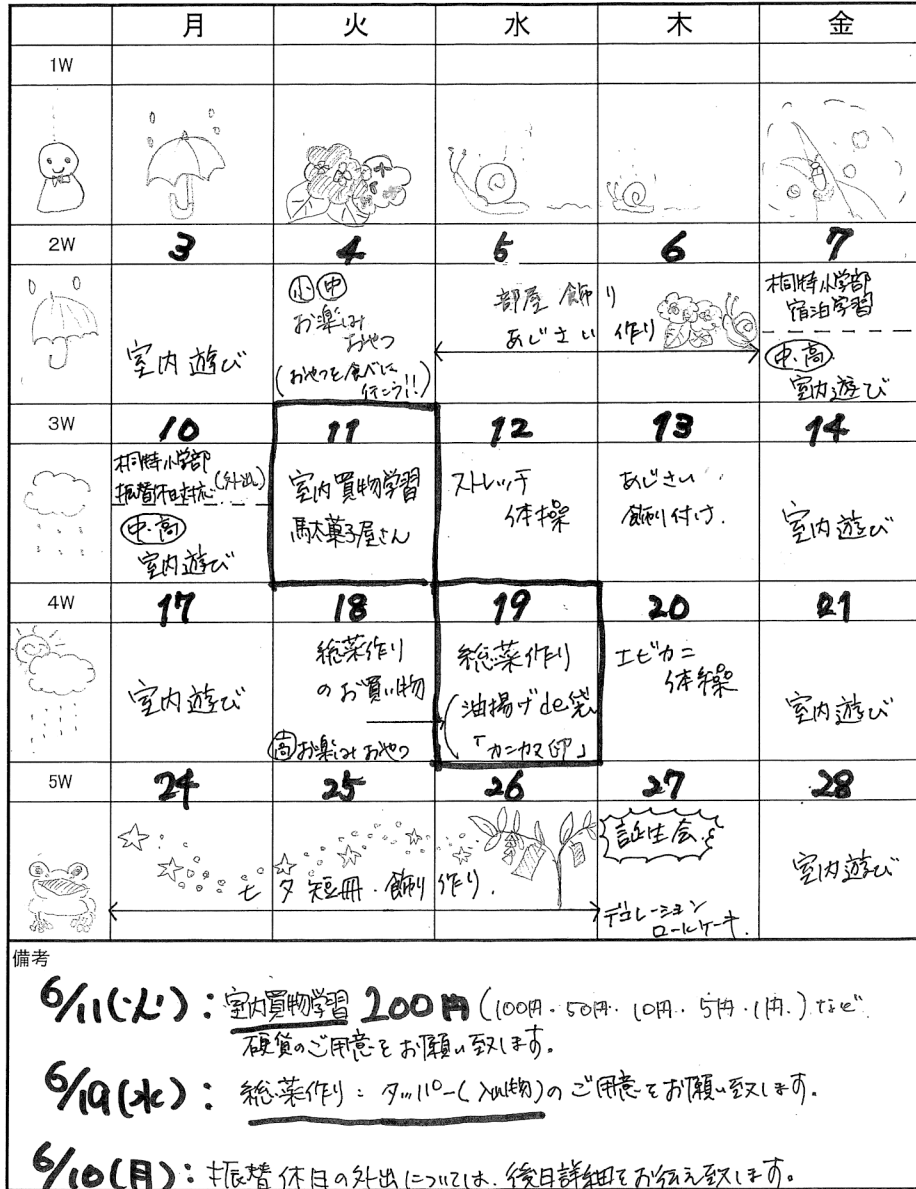 月 火 水 木 金
1W
2W 3 4 5 6 7
室内遊び
小 中
お楽しみ
おやつ
(おやつを食べに
行こう!!)
部屋飾り
あじさい作り
桐特小学部
宿泊学習
中・高
室内遊び
3W 10 11 12 13 14
桐特小学部
振替休日対応(外出)
中・高
室内遊び
室内買物学習
駄菓子屋さん
ストレッチ
体操
あじさい
飾り付け.
室内遊び
4W 17 18 19 20 21
室内遊び
総菜作り
のお買い物
高 お楽しみおやつ
総菜作り
(油揚げde袋
「カニカマ卵」
エビカニ
体操
室内遊び
5W 24 25 26 27 28
七夕短冊・飾り作り.
誕生会
デコレーション
ロールケーキ.
室内遊び
備考
6/11(火):室内買物学習 200円(100円・50円・10円・5円・1円.)など
硬貨のご用意をお願い致します。
6/19(水):総菜作り:タッパー(入れ物)のご用意をお願い致します。
6/10(月):振替休日の外出については、後日詳細をお伝え致します。